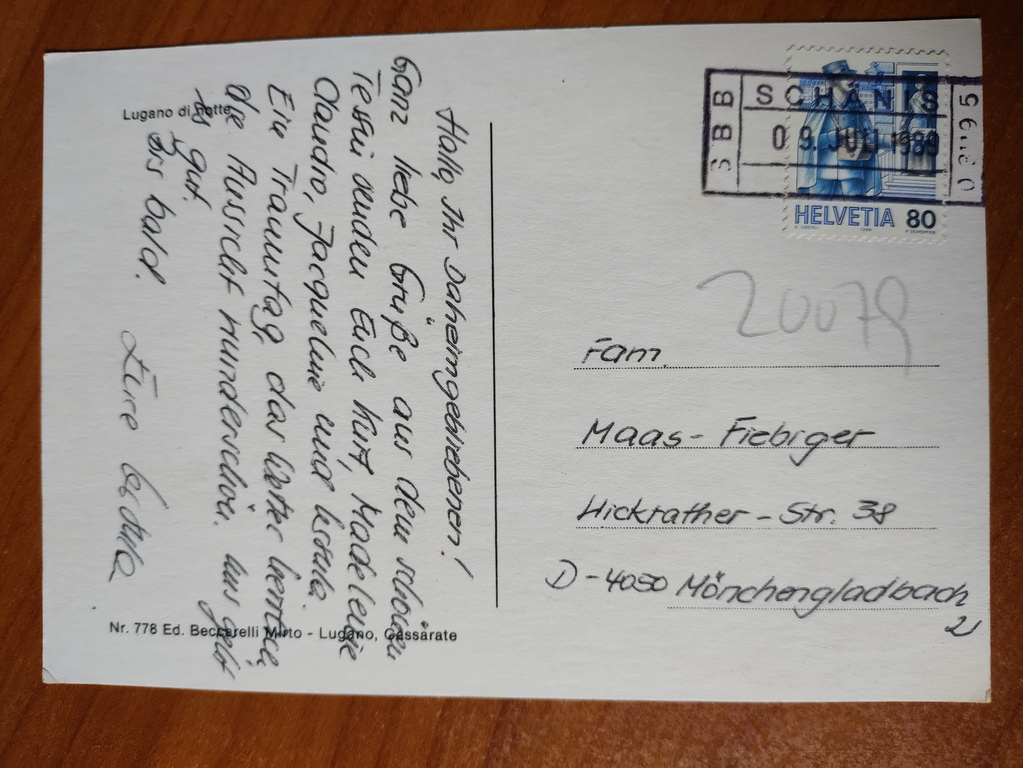 Lugano di notte
Hallo Ihr Daheimgebliebenen!
Ganz liebe Grüße aus dem schönen
Tessin senden Euch Kurt, Madeleine
Claudio, Jacqueline und
Ein Traumtag, das Wetter herrlich,
die Aussicht wunderschön. Uns geht
es gut.
Bis bald. Eure
Nr. 778 Ed. Beccarelli Mirto - Lugano, Cassarate
SBB
SCHÄNIS
09. JULI 1989
HELVETIA 80
20079
Fam.
Maas-Fiebiger
Hickrather-Str. 38
D-4050 Mönchengladbach
2